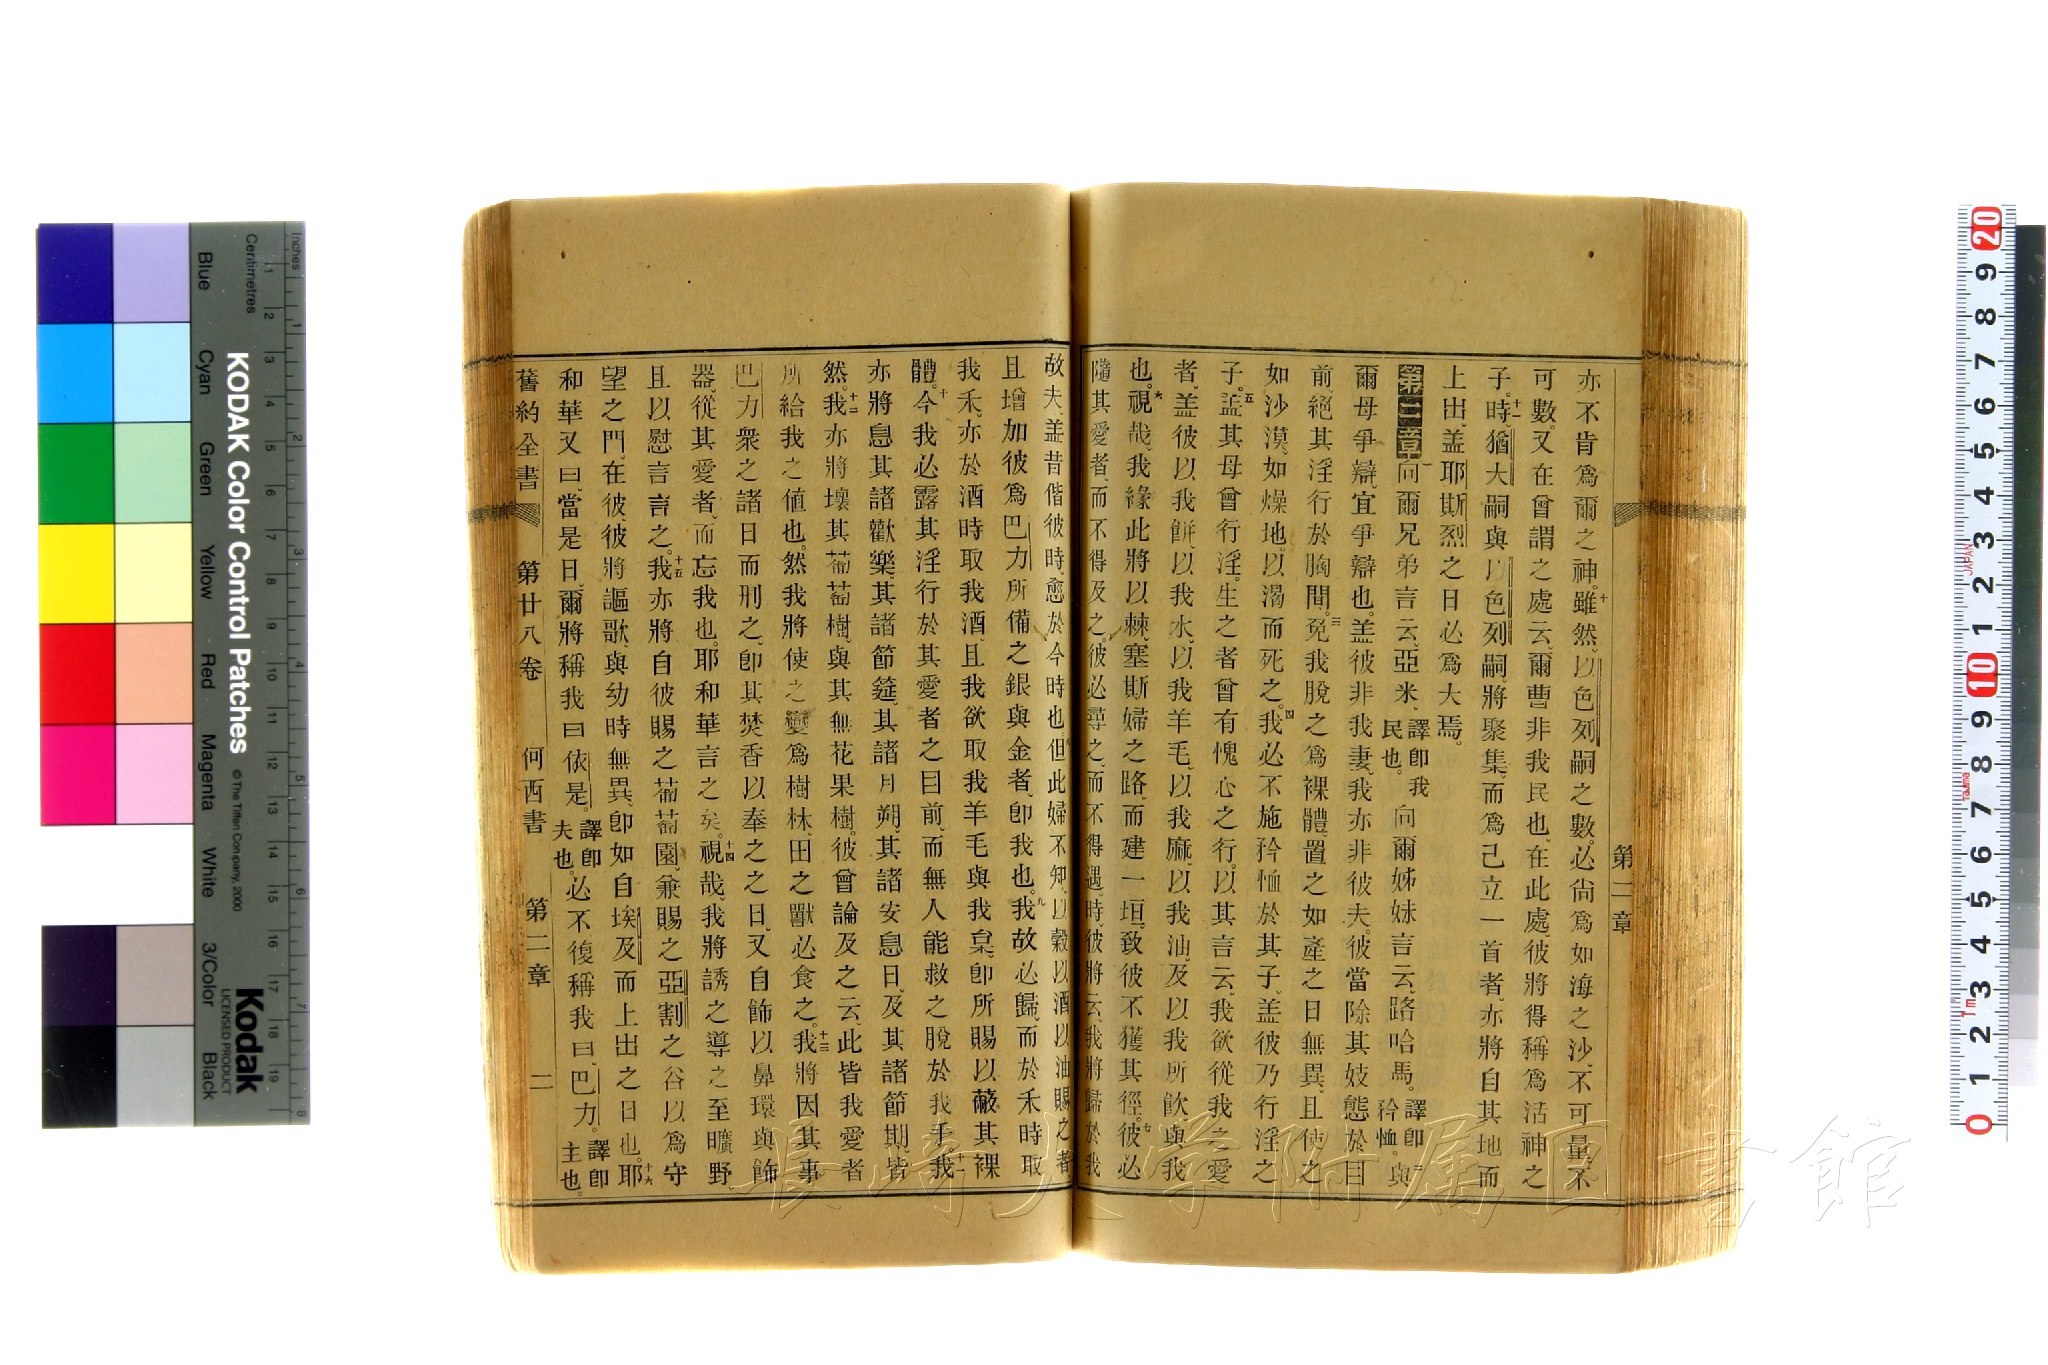 第二章
亦不肯為爾之神。十雖然、以色列嗣之數、必尙為如海之沙、不可量、不
可數。又在曾謂之處云、爾曹非我民也、在此處、彼將得稱為活神之
子。十一時、猶大嗣與以色列嗣、將聚集、而為己立一首者、亦將自其地而
上出、盖耶斯烈之日必為大焉。
第二章 一向爾兄弟言云、亞米、譯卽我民也。向爾姊妹言云、路哈馬。譯卽矜恤。二與
爾母爭辯、宜爭辯也。盖彼非我妻、我亦非彼夫。彼當除其妓態於目
前、絕其淫行於胸間。三免我脫之為裸體、置之如產之日無異、且使之
如沙漠、如燥地、以渴而死之。四我必不施矜恤於其子、盖彼乃行淫之
子。五盖其母曾行淫。生之者曾有愧心之行。以其言云、我欲從我之愛
者、盖彼以我餅、以我水、以我羊毛、以我麻、以我油、及以我所飲、與我
也。六視哉、我緣此將以棘、塞斯婦之路、而建一垣、致彼不獲其徑。七彼必
隨其愛者、而不得及之、彼必尋之、而不得遇。時彼將云、我將歸於我
故夫、盖昔偕彼時、愈於今時也。八但此婦不知、以穀以酒以油賜之者、
且增加彼為巴力所備之銀與金者、卽我也。九我故必歸、而於禾時取
我禾、亦於酒時取我酒、且我欲取我羊毛與我枲、卽所賜以蔽其裸
體。十今我必露其淫行於其愛者之目前、而無人能救之脫於我手。十一我
亦將息其諸歡樂、其諸節筵、其諸月朔、其諸安息日、及其諸節期、皆
然。十二我亦將壞其葡萄樹、與其無花果樹。彼曾論及之云、此皆我愛者
所給我之值也。然我將使之變為樹林、田之獸必食之。十三我將因其事
巴力衆之諸日而刑之、卽其焚香以奉之之日、又自飾以鼻環與飾
器、從其愛者、而忘我也。耶和華言之矣。十四視哉、我將誘之導之至曠野、
且以慰言言之。十五我亦將自彼賜之葡萄園、兼賜之亞割之谷以為守
望之門、在彼、彼將謳歌、與幼時無異、卽如自埃及而上出之日也。十六耶
和華又曰、當是日、爾將稱我曰依是、譯卽夫也。必不復稱我曰、巴力。譯卽主也。
舊約全書 第廿八卷 何西書 第二章 二
KODAK Color Control Patches
© The Tiffen Company, 2000
Kodak
LICENSED PRODUCT
Inches
Centimetres
Blue
Cyan
Green
Yellow
Red
Magenta
White
3/Color
Black
JAPAN
長崎大学附属図書館